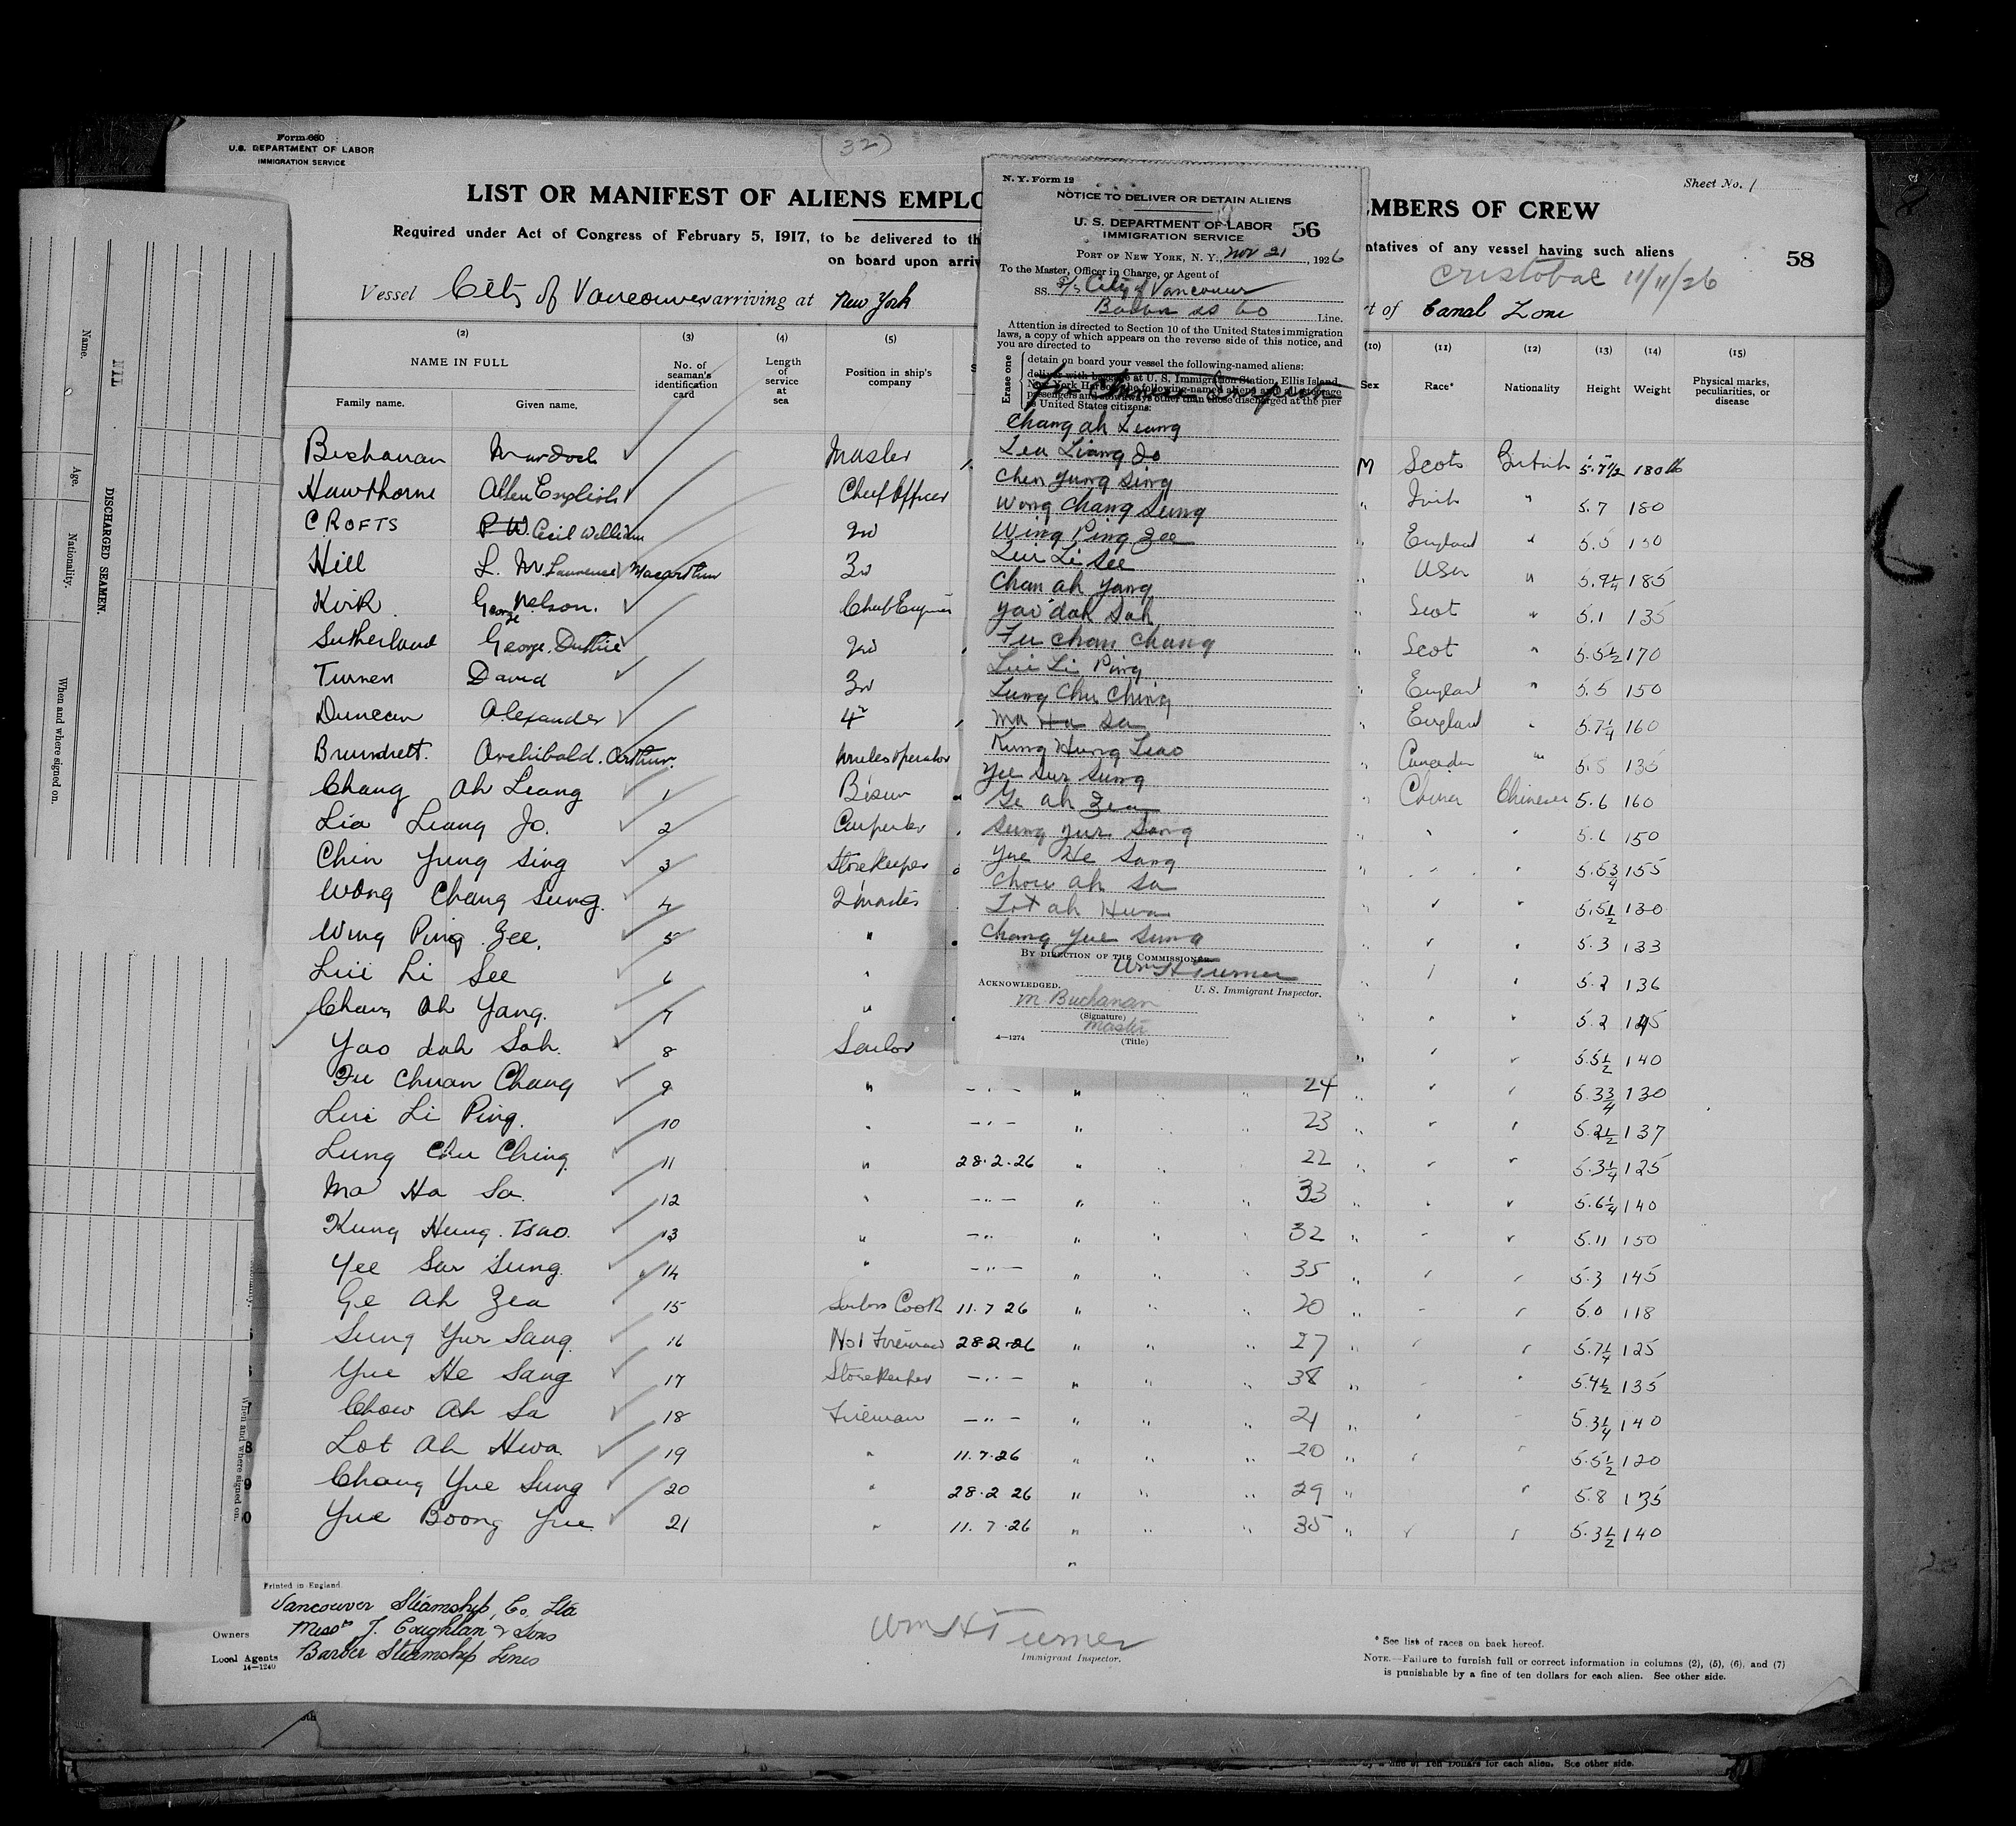 Form 680
U.S. DEPARTMENT OF LABOR
IMMIGRATION SERVICE
(32)
Sheet No. 1
LIST OR MANIFEST OF ALIENS EMPLO
EMBERS OF CREW
Required under Act of Congress of February 5, 1917, to be delivered to th
ntatives of any vessel having such aliens
on board upon arriv
58
Cristobal 11/11/26
Vessel City of Vancouver arriving at New York
t of Canal Zone
(2) (3) (4) (5) (10) (11) (12) (13) (14) (15)
NAME IN FULL
Family name. Given name.
No. of seaman's identification card
Length of service at sea
Position in ship's company
Sex
Race*
Nationality
Height
Weight
Physical marks, peculiarities, or disease
Buchanan Murdoch Master M Scots British 5.7½ 180 lb
Hawthorne Allen English Chief Officer " Irish " 5.7 180
CROFTS P W. Cecil William 2nd " England " 5.5 150
Hill L. M. Laurence Macarthur 3rd " USA " 5.9¼ 185
Kirk George Nelson. Chief Engineer " Scot " 5.1 135
Sutherland George Duthie 2nd " Scot " 5.5½ 170
Turner David 3rd " England " 5.5 150
Duncan Alexander 4th " England " 5.7¼ 160
Brundrett. Archibald. Arthur. Wireless Operator " Canadian " 5.8 135
Chang Ah Leang 1 Bosun " China Chinese 5.6 160
Lia Leang Jo. 2 Carpenter 5.6 150
Chin Yung Sing 3 Storekeeper 5.5¾ 155
Wong Chang Sung. 4 2 mates 5.5½ 130
Wing Ping Zee. 5 " 5.3 133
Lui Li See 6 " 5.2 136
Chang Ah Yang. 7 " 5.2 145
Yao dah Sah. 8 Sailor 5.5½ 140
Fu Chuan Chang 9 " — " — " 24 " 5.3¾ 130
Lui Li Ping. 10 " — " — " 23 " 5.2½ 137
Lung Chu Ching 11 " 28.2.26 " 22 " 5.3¼ 125
Ma Ha Sa. 12 " — " — " 33 " 5.6¼ 140
Kung Hung. Tsao. 13 " — " " 32 " 5.11 150
Yee Sur Sung. 14 " — " — " 35 " 5.3 145
Ge Ah Zea 15 Sailors Cook 11.7 26 " 20 " 5.0 118
Sung Yur Sang. 16 No 1 Fireman 28.2.26 " 27 " 5.7¼ 125
Yue He Sang 17 Storekeeper — " — " 38 " 5.4½ 135
Chow Ah Sa 18 Fireman — " — " 21 " 5.3¼ 140
Lot Ah Hwa. 19 " 11.7.26 " 20 " 5.5½ 120
Chang Yue Sung 20 " 28.2 26 " 29 " 5.8 135
Yue Boong Yue 21 " 11.7.26 " 35 " 5.3½ 140
Printed in England.
Vancouver Steamship, Co. Ltd
Owners Messrs J. Coughlan & Sons
Local Agents Barber Steamship Lines
14—1240
Wm H Turner
Immigrant Inspector.
* See list of races on back hereof.
NOTE.—Failure to furnish full or correct information in columns (2), (5), (6), and (7)
is punishable by a fine of ten dollars for each alien. See other side.
N. Y. Form 12
NOTICE TO DELIVER OR DETAIN ALIENS
U. S. DEPARTMENT OF LABOR
IMMIGRATION SERVICE
56
PORT OF NEW YORK, N. Y., Nov 21, 1926
To the Master, Officer in Charge, or Agent of
SS. S/S City of Vancouver
Line.
Attention is directed to Section 10 of the United States immigration
laws, a copy of which appears on the reverse side of this notice, and
you are directed to
Erase one
detain on board your vessel the following-named aliens:
deliver with baggage at U. S. Immigration Station, Ellis Island,
New York Harbor, the following-named aliens and all steerage
passengers and stowaways other than those discharged at the pier
as United States citizens:
Chang ah Leang
Lea Liang Jo
Chen Yung Sing
Wong Chang Sung
Wing Ping Zee
Lui Li See
Chan ah Yang
Yao dah Sah
Fu Chan Chang
Lui Li Ping
Lung Chu Ching
Ma Ha Sa
Kung Hung Tsao
Yee Sur Sung
Ge ah Zea
Sung Yur Sang
Yue He Sang
Chow ah Sa
Lot ah Hwa
Chang Yue Sung
BY DIRECTION OF THE COMMISSIONER.
Wm H Turner
U. S. Immigrant Inspector.
ACKNOWLEDGED.
M. Buchanan
(Signature)
Master
(Title)
4—1274
Name.
Age.
Nationality.
When and where signed on.
NIL
DISCHARGED SEAMEN.
When and where signed on.
by a fine of Ten Dollars for each alien. See other side.